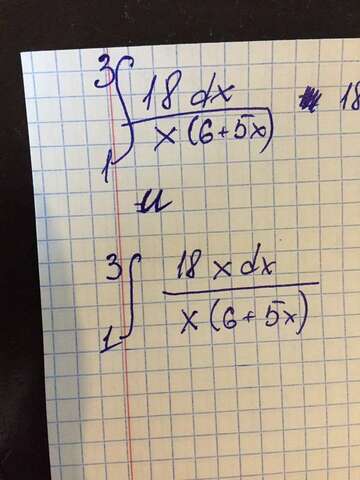 3
∫ 18 dx / x (6+5x) 18
1
и
3
∫ 18 x dx / x (6+5x)
1